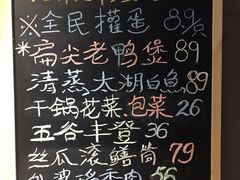 ※全民權蛋 8.9/只
*扁尖老鸭煲 89
清蒸太湖白鱼 89
干锅花菜.包菜 26
五谷丰登 36
丝瓜滚鳝筒 79
56